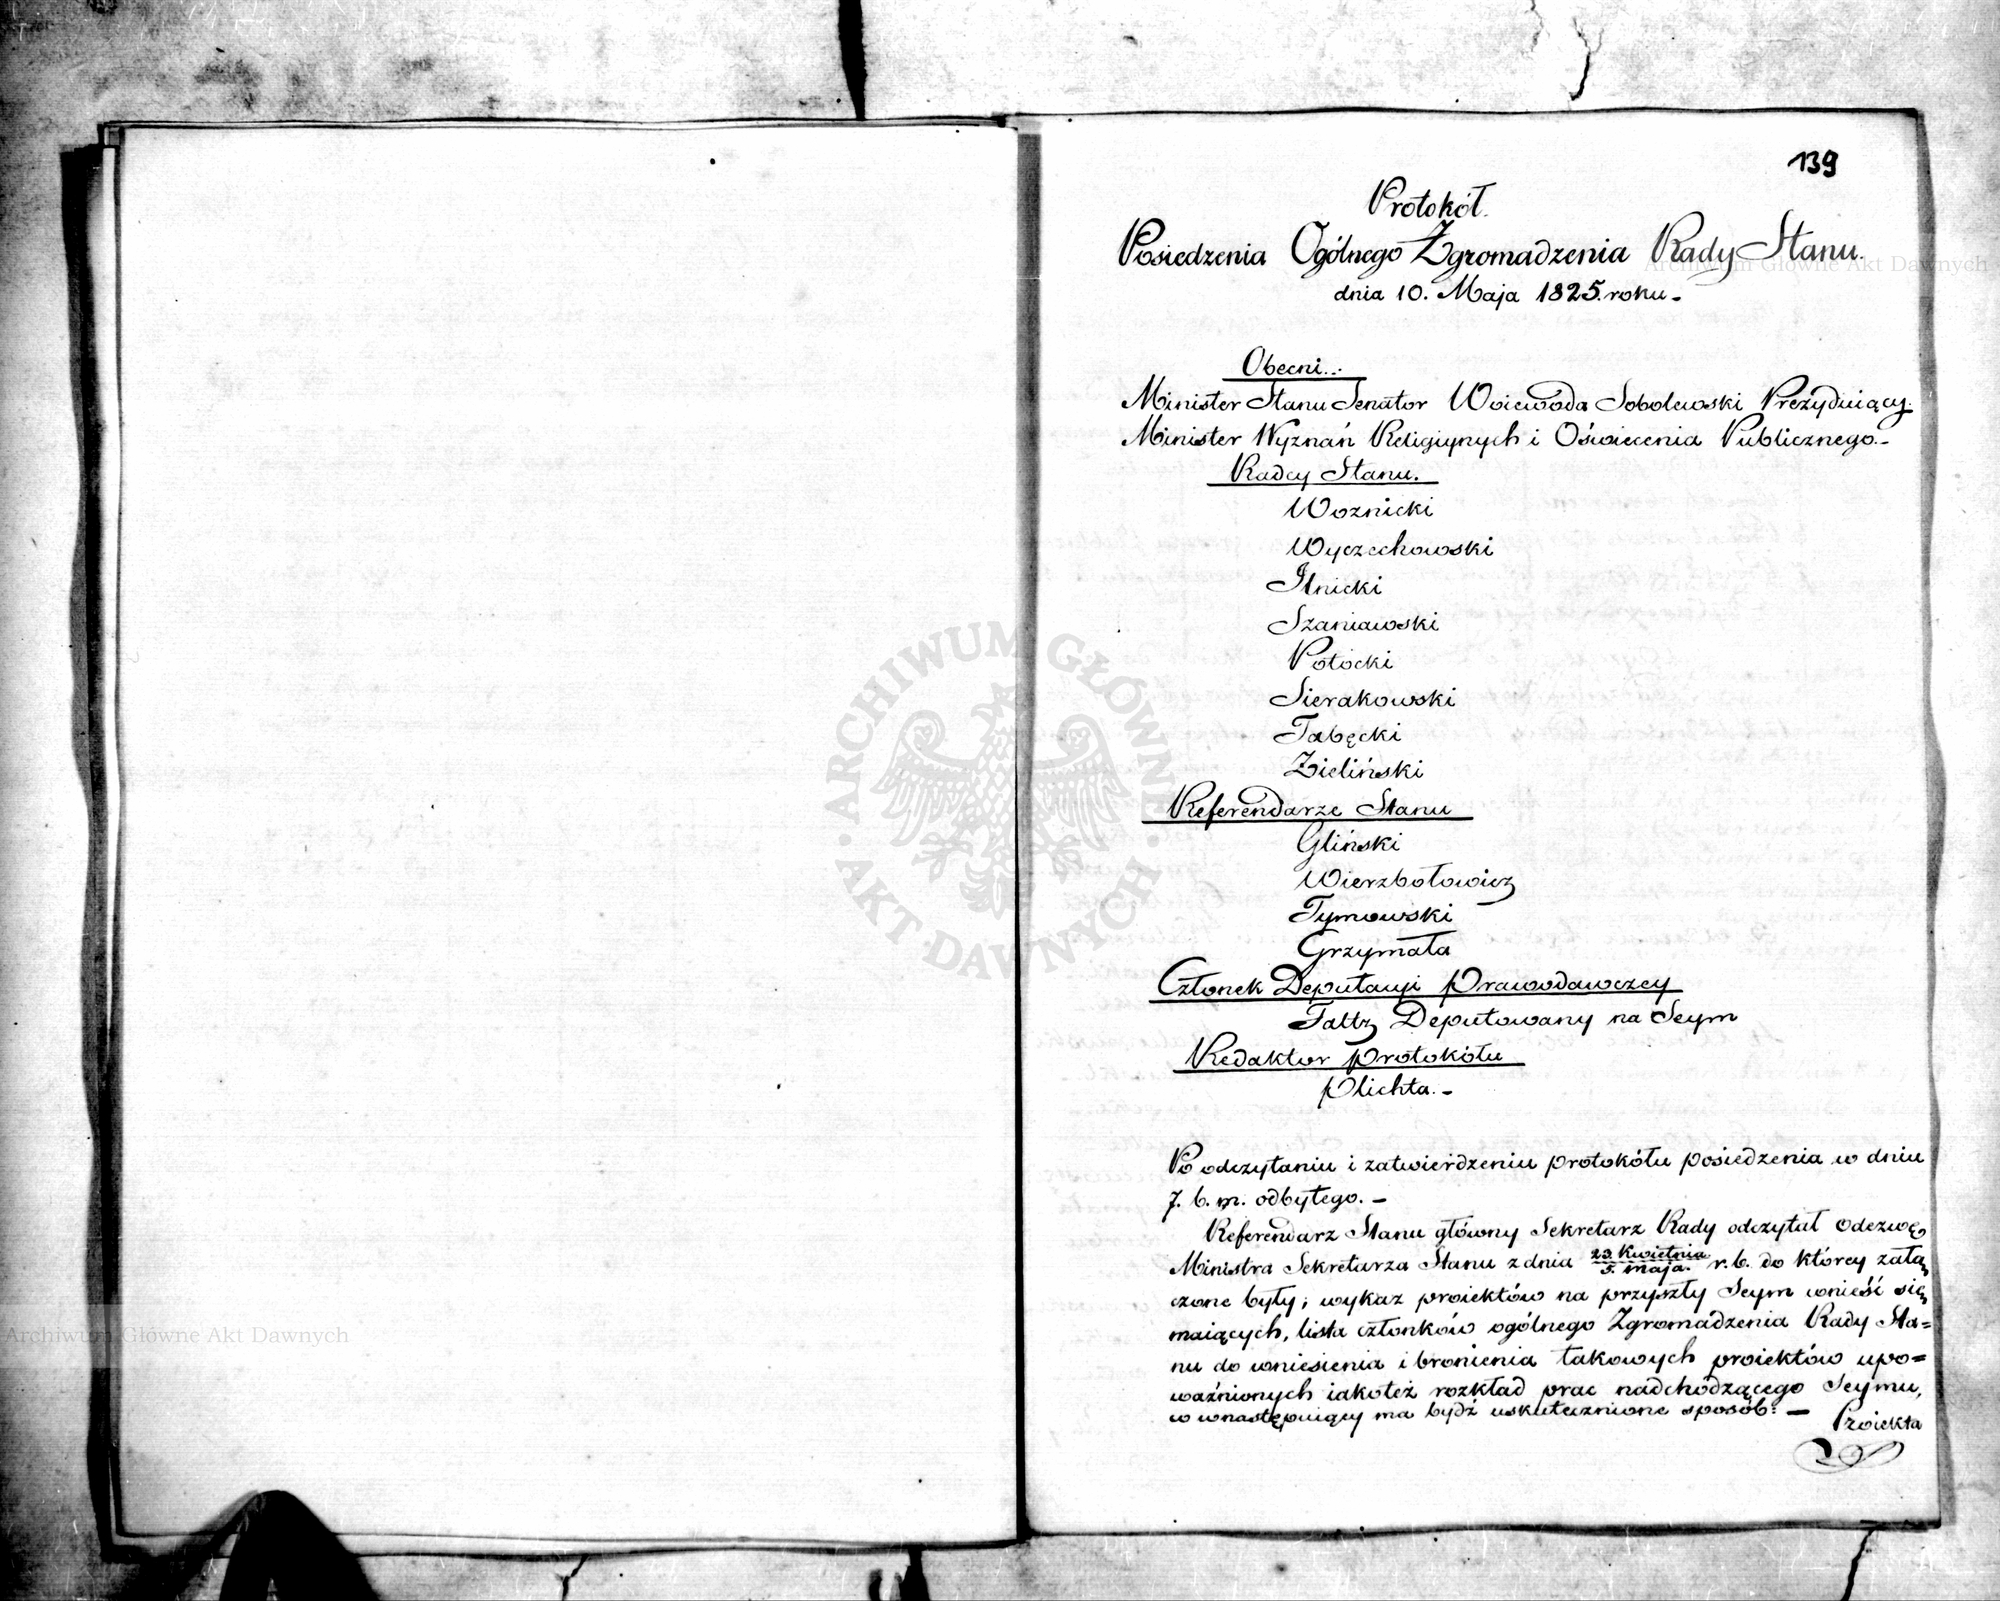 139
Protokół.
Posiedzenia Ogólnego Zgromadzenia Rady Stanu.
dnia 10. Maja 1825. roku.–
Obecni...
Minister Stanu Senator Woiewoda Sobolewski Prezyduiący.
Minister Wyznań Religiynych i Oświecenia Publicznego.–
Radcy Stanu.
Woznicki
Wyczechowski
Ilnicki
Szaniawski
Potocki
Sierakowski
Tabęcki
Zieliński
Referendarze Stanu
Gliński
Wierzbołowicz
Tymowski
Grzymała
Członek Deputacyi Prawodawczey
Faltz Deputowany na Seym
Redaktor protokółu
Plichta.–
Po odczytaniu i zatwierdzeniu protokółu posiedzenia w dniu
7. b. m. odbytego.–
Referendarz Stanu główny Sekretarz Rady odczytał odezwę
Ministra Sekretarza Stanu z dnia 23. Kwietnia / 5. maja. r. b. do którey załą
czone były; wykaz proiektów na przyszły Seym wnieść się
maiących, lista członków ogólnego Zgromadzenia Rady Sta=
nu do wniesienia i bronienia takowych proiektów upo=
ważnionych iakoteż rozkład prac nadchodzącego Seymu,
co w następuiący ma bydź uskutecznione sposób: –
Proiekta
ARCHIWUM GŁÓWNE AKT DAWNYCH
Archiwum Główne Akt Dawnych
Archiwum Główne Akt Dawnych